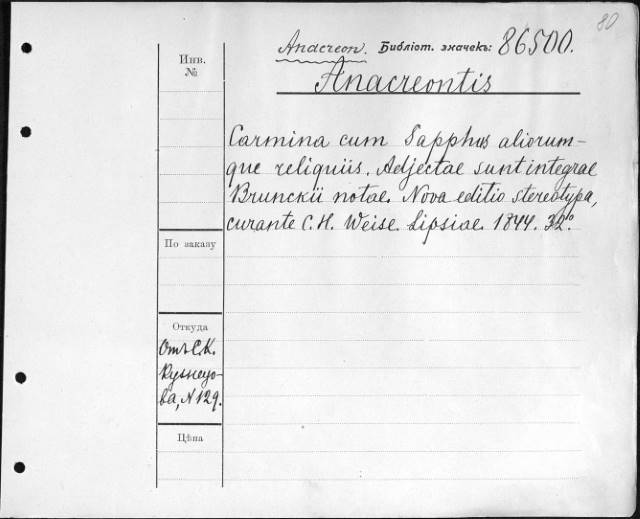 80
Anacreon. Библіот. значекъ: 86500.
Инв.
№
Anacreontis
Carmina cum Sapphus aliorum-
que reliquiis. Adjectae sunt integrae
Brunckii notae. Nova editio stereotypa,
curante C. H. Weise. Lipsiae. 1844. 32°.
По заказу
Откуда
Отъ С.К.
Кузнецо-
ва, № 129.
Цѣна